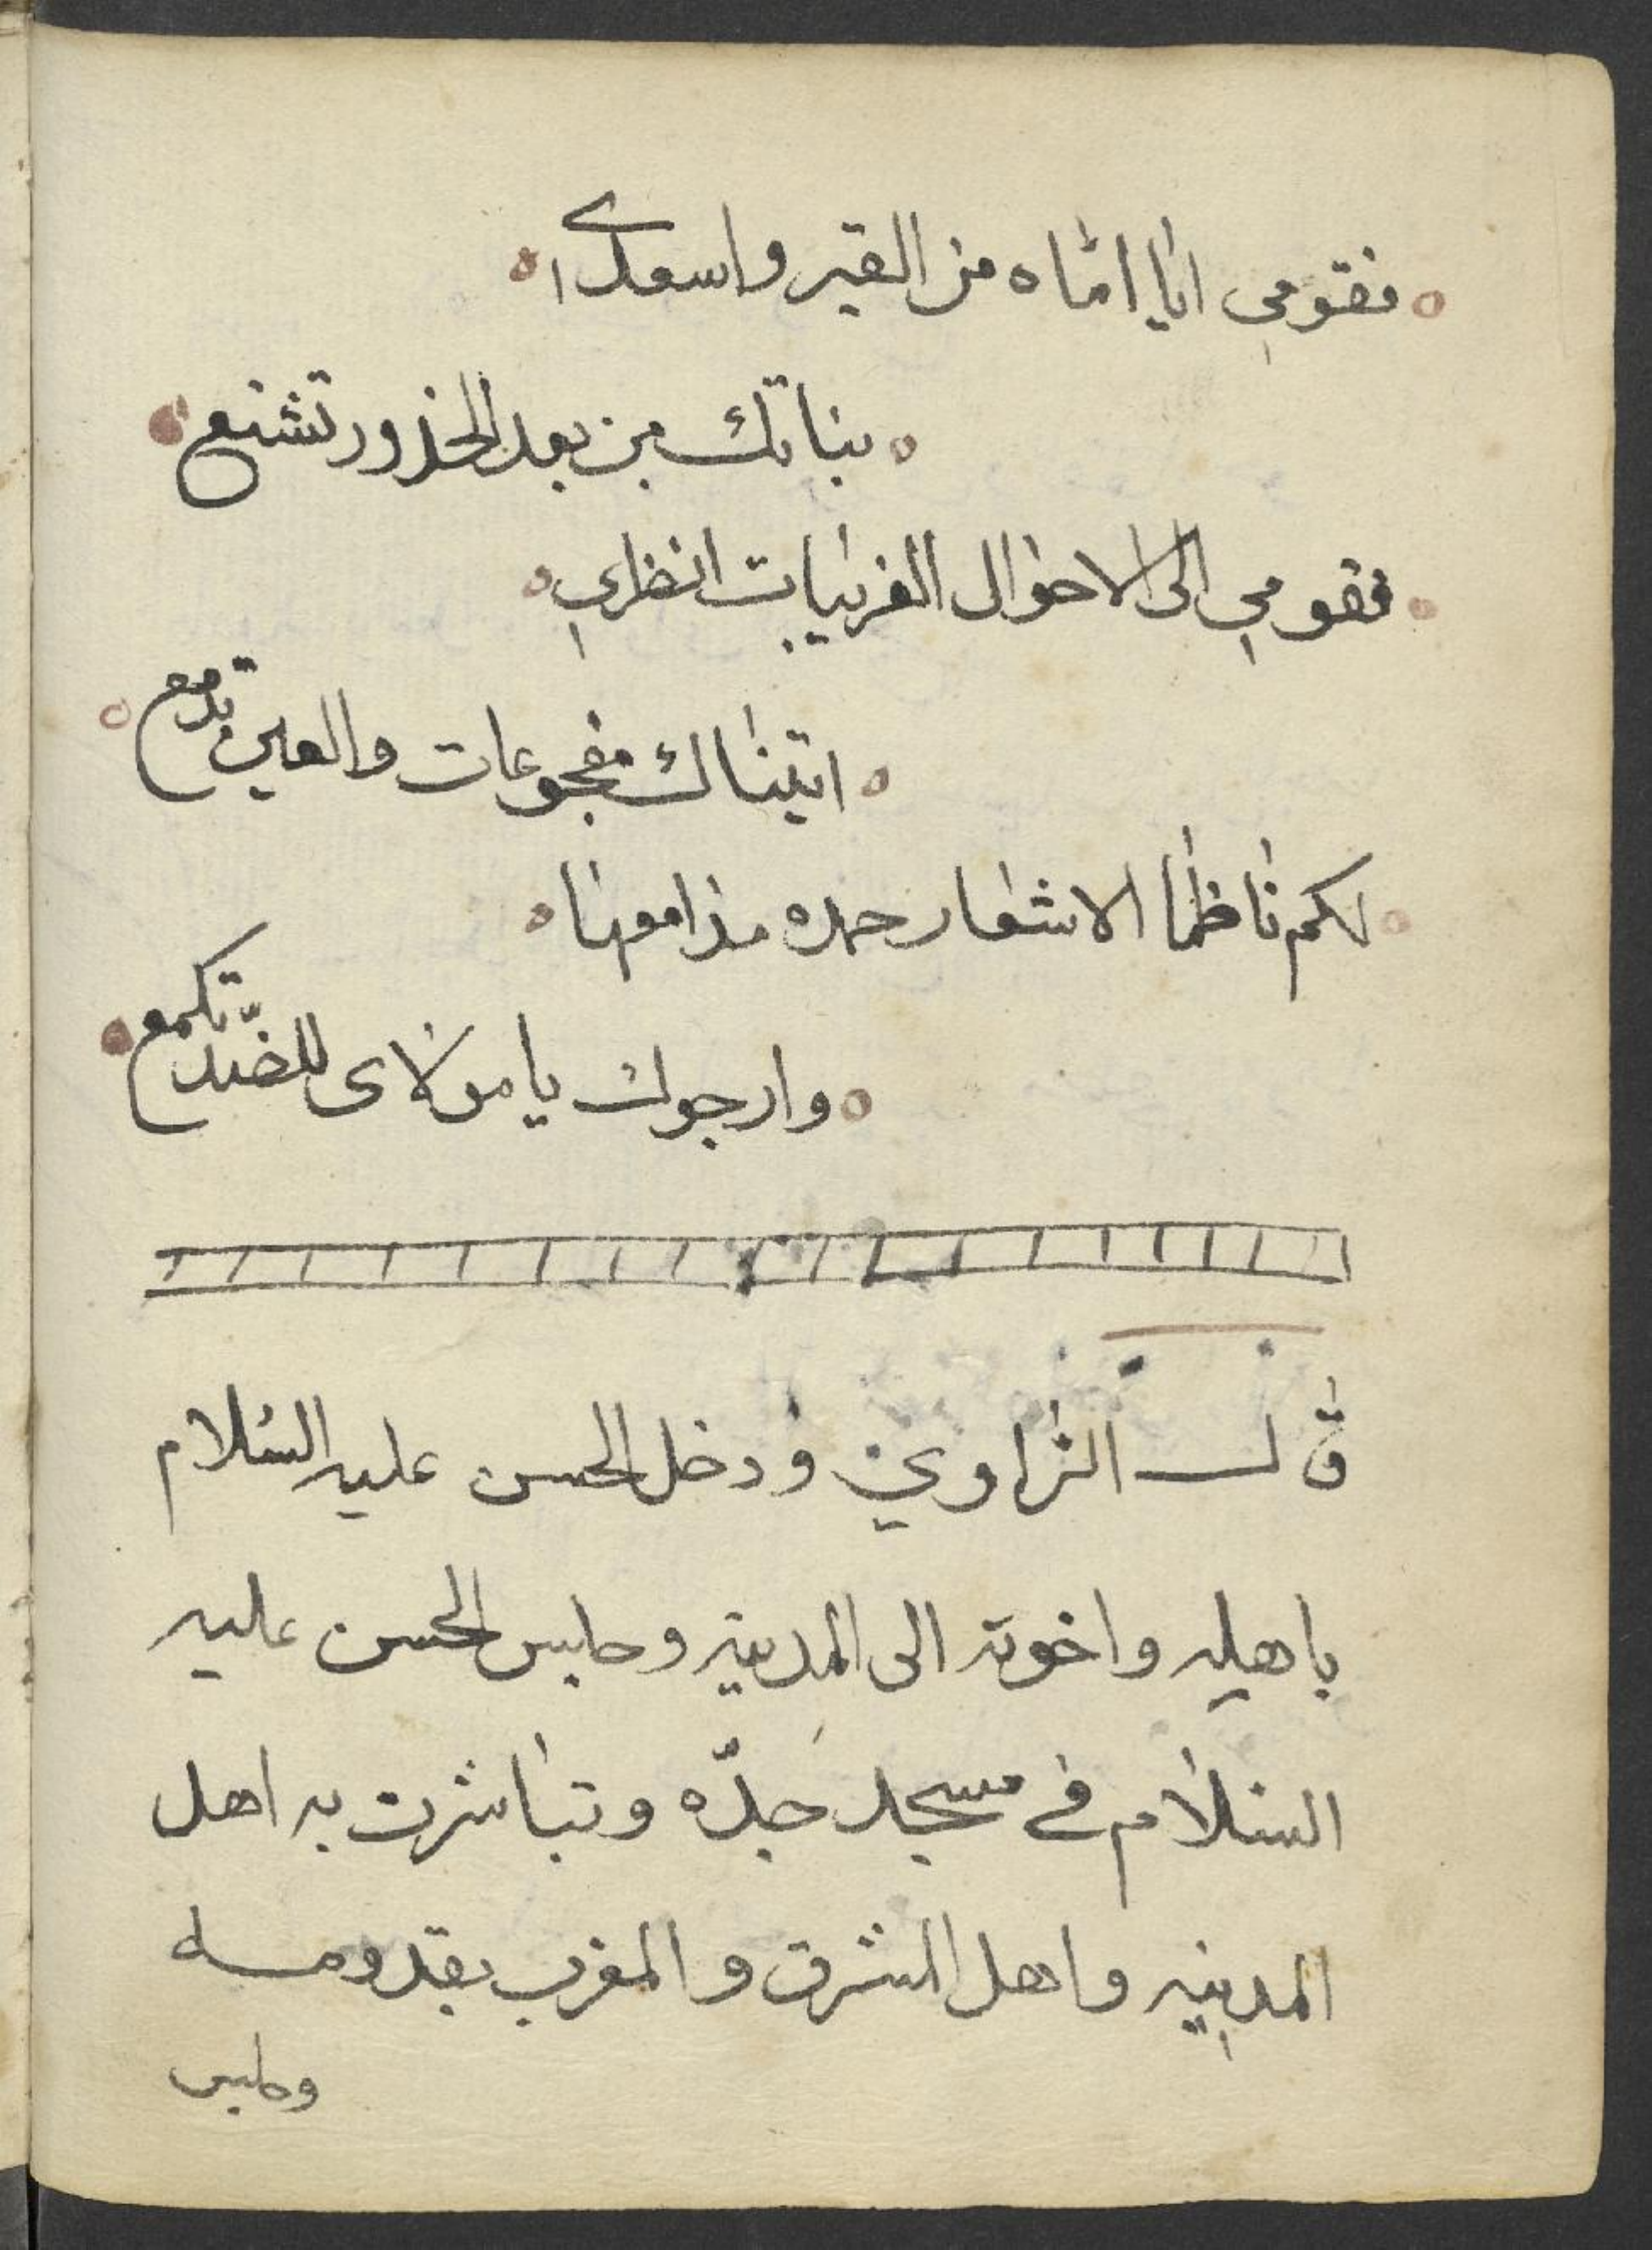 فقومي ايا اماه من القبر واسعدي
بناتك من بعد الخدور تشنع
فقومي الى الاحوال الغريبات انظري
اتيناك مفجوعات والعين تدمع
لكم ناظما الاشعار حمده
وارجوك يا مولاى للضد تكمع
قال الراوي ودخل الحسن عليه السلام
باهله واخوته الى المدينه وجلس الحسن عليه
السلام في مسجد جدّه وتباشرت به اهل
المدينه واهل المشرق والمغرب بقدومه
وجلس